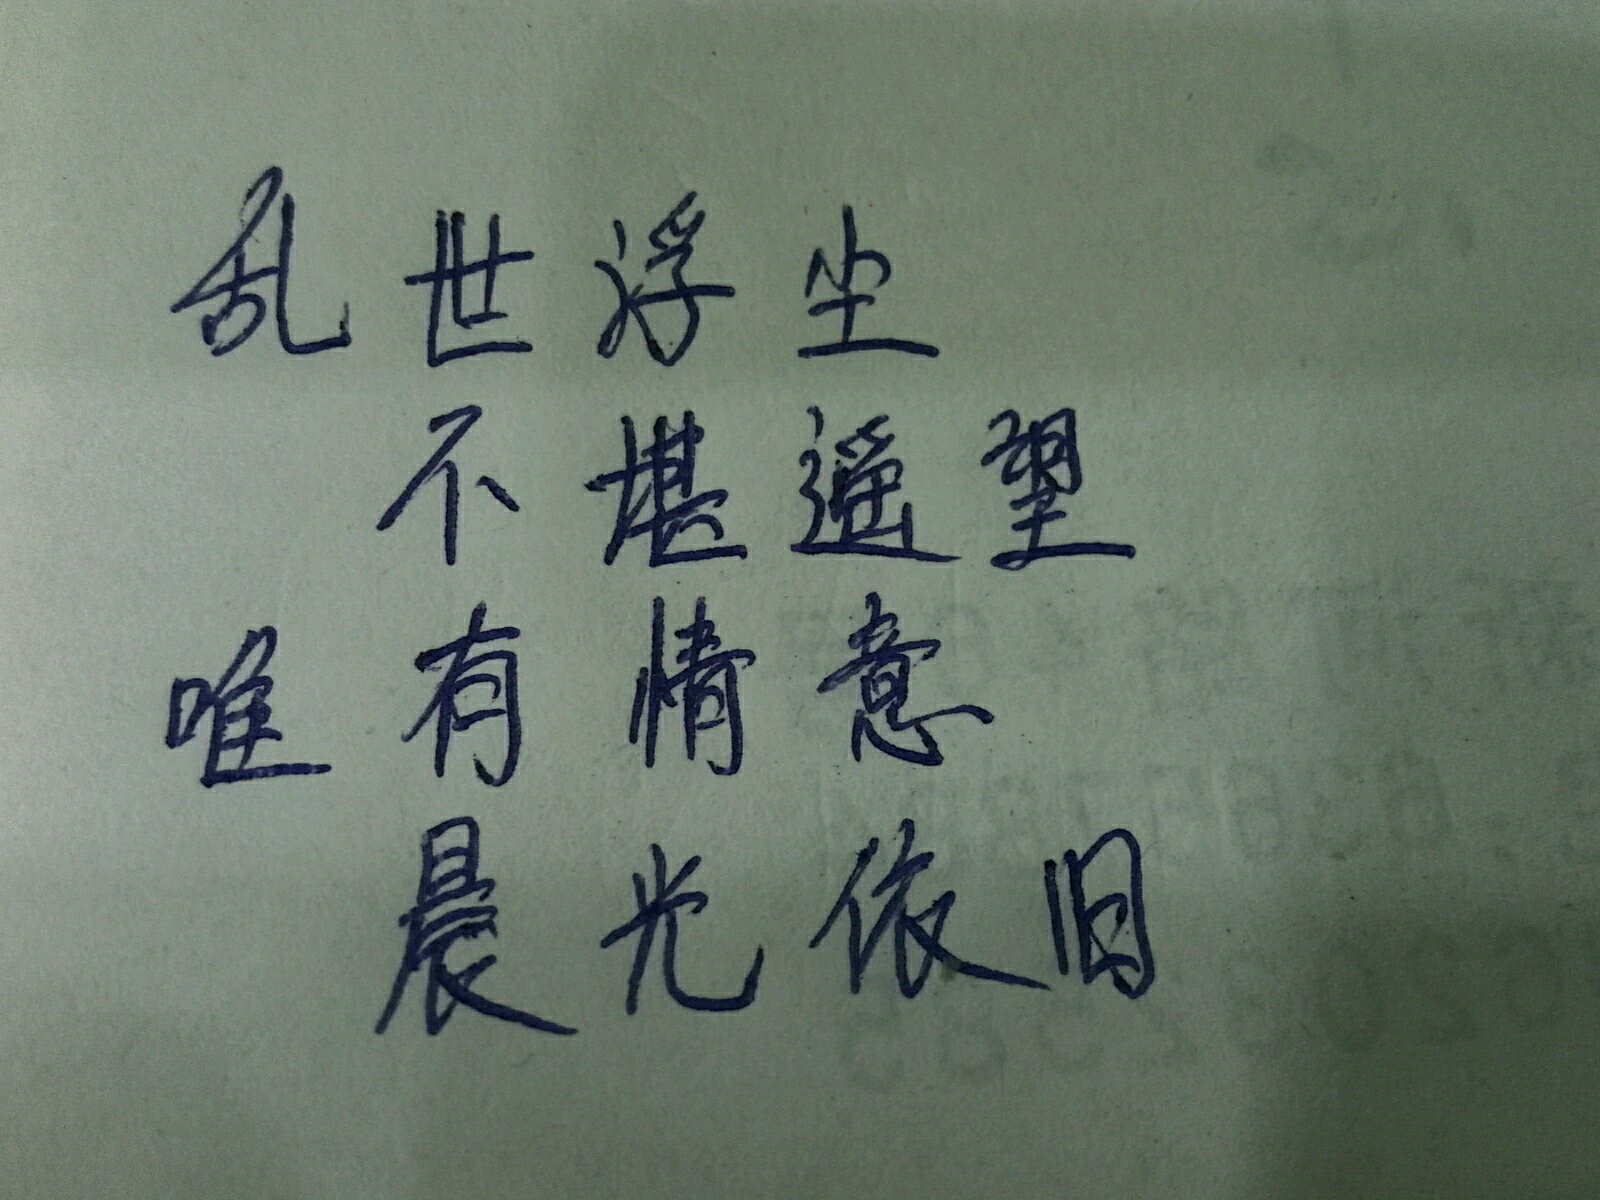 乱世浮尘
不堪遥望
唯有情意
晨光依旧